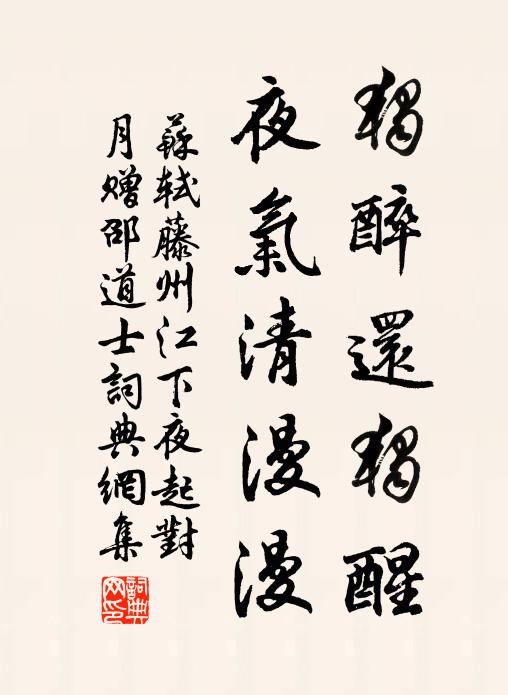 獨醉還獨醒
夜氣清漫漫
蘇軾藤州江下夜起對
月贈邵道士詞典網集
詞典網印